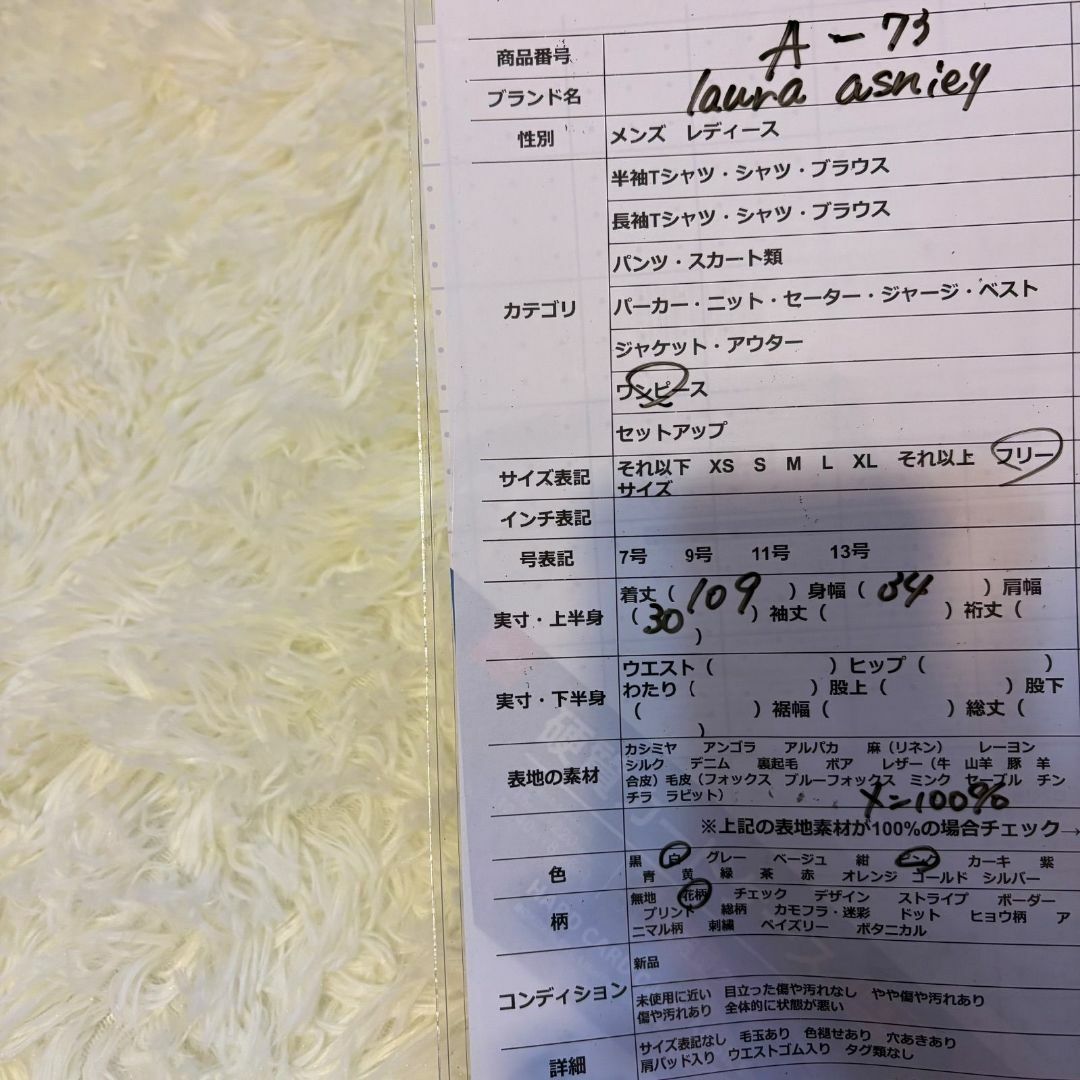 商品番号 A-73
ブランド名 laura asniey
性別 メンズ レディース
カテゴリ
半袖Tシャツ・シャツ・ブラウス
長袖Tシャツ・シャツ・ブラウス
パンツ・スカート類
パーカー・ニット・セーター・ジャージ・ベスト
ジャケット・アウター
ワンピース
セットアップ
サイズ表記 それ以下 XS S M L XL それ以上 フリー
サイズ
インチ表記
号表記 7号 9号 11号 13号
実寸・上半身 着丈( 109 )身幅( 34 )肩幅
( 30 )袖丈( )裄丈(
)
実寸・下半身 ウエスト( )ヒップ( )
わたり( )股上( )股下
( )裾幅( )総丈(
)
表地の素材 カシミヤ アンゴラ アルパカ 麻(リネン) レーヨン
シルク デニム 裏起毛 ボア レザー(牛 山羊 豚 羊
合皮)毛皮(フォックス ブルーフォックス ミンク セーブル チン
チラ ラビット) メン100%
※上記の表地素材が100%の場合チェック→
色 黒 白 グレー ベージュ 紺 ピンク カーキ 紫
青 黄 緑 茶 赤 オレンジ ゴールド シルバー
柄 無地 花柄 チェック デザイン ストライプ ボーダー
プリント 総柄 カモフラ・迷彩 ドット ヒョウ柄 ア
ニマル柄 刺繍 ペイズリー ボタニカル
コンディション 新品
未使用に近い 目立った傷や汚れなし やや傷や汚れあり
傷や汚れあり 全体的に状態が悪い
詳細 サイズ表記なし 毛玉あり 色褪せあり 穴あきあり
肩パッド入り ウエストゴム入り タグ類なし